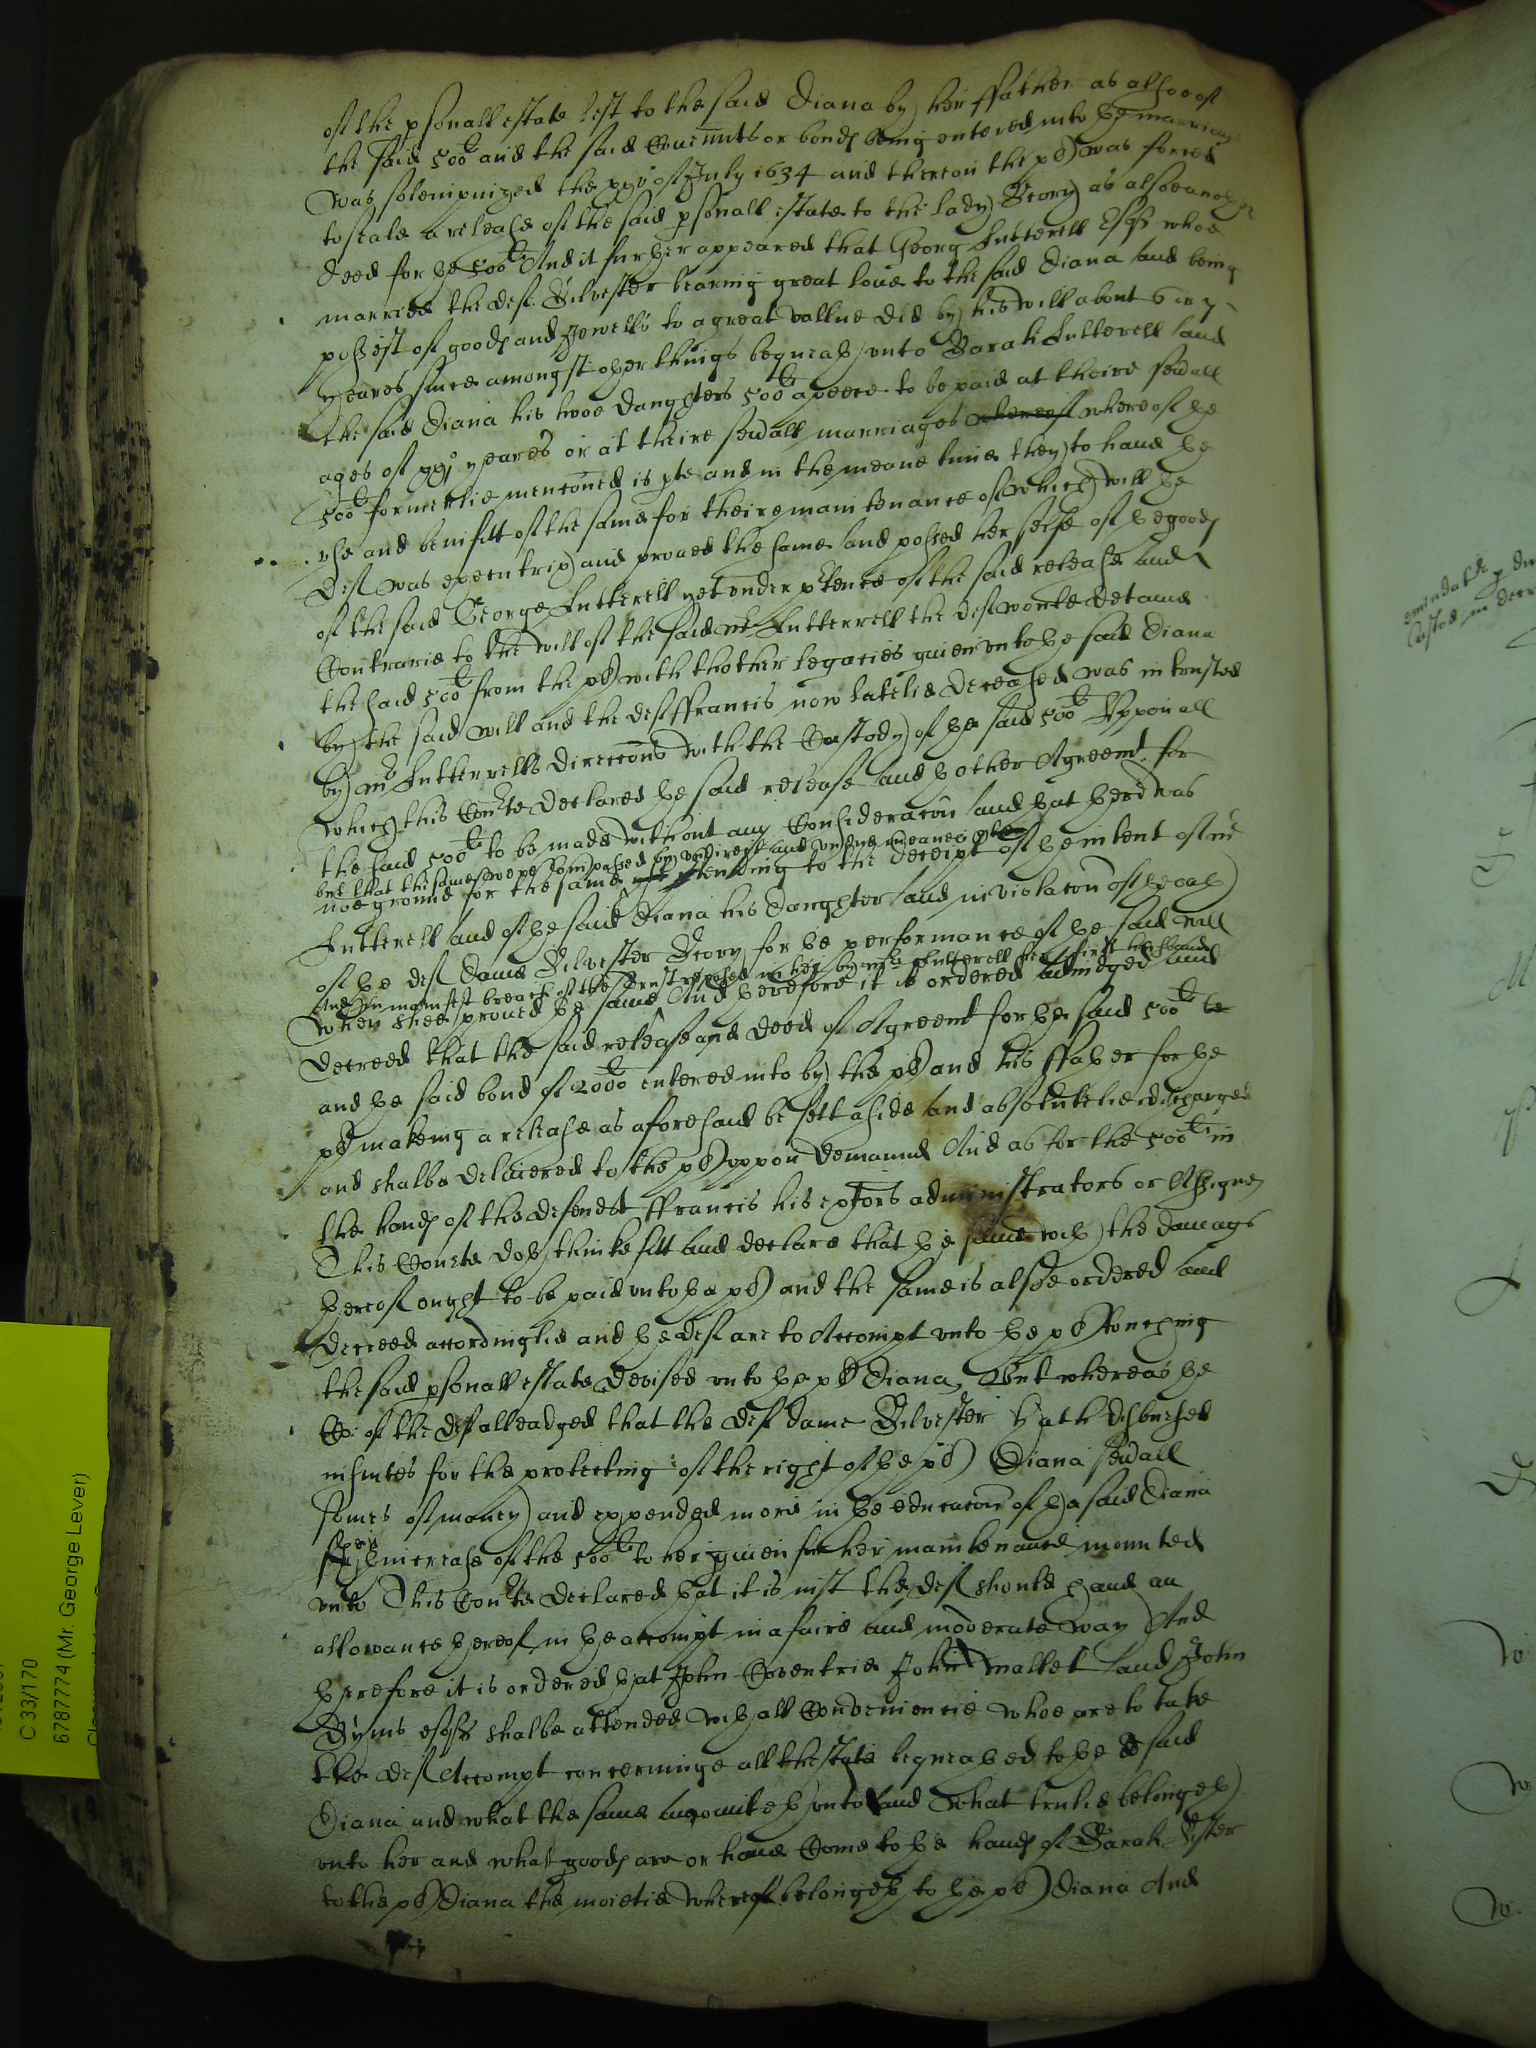 of the psonall estate left to the said Diana by her ffather as alsoe of
the said 500li and the said Covennts or bonds being entered into the marriage
was solempnized the xxvi of July 1634 and thereon the pl was forced
to seale a release of the said psonall estate to the lady Skory as alsoe another
deed for the 500li And it further appeared that Georg Lutterell Esqr whoe
married the deft Silvester bearing great love to the said Diana and being
possest of goods and Jewells to a great vallue did by his will about 6 or 7
yeares since amongst other things bequeath unto Sarah Lutterell and
the said Diana his twoe daughters 500li apeece to be paid at theire sevall
ages of xxj yeares or at theire sevall marriages whereof whereof the
500li formerlie menconed is pte and in the meane time they to have the
use and benifitt of the same for theire maintenance of which will the
Deft was executrix and proved the same and possed her selfe of the goods
of the said George Lutterell yet under ptence of the said release and
Contrarie to the will of the said mr Lutterrell the deft would detaine
the said 500li from the pl with thother legacies given unto the said Diana
by the said will and the deft ffrancis now latelie deceased was intrusted
by mr Lutterrells direccons with the Custody of the said 500li Uppon all
which this Courte declared the said release and thother Agreemt for
the said 500li to be made without any Consideracon and that there was
but that the same were Compassed by indirect and undue meanes
noe ground for the same tending to the deceipt of the intent of mr
Lutterell and of the said Diana his daughter and in violacon of the oath
of the deft dame Silvester Skory for the performance of the said will
And in manifest breach of the trust reposed in her by mr Lutterell her first husband
When shee proved the same And therefore it is ordered adiudged and
decreed that the said release and deed of Agreemt for the said 500li
and the said bond of 2000li entered into by the pl and his ffather for the
pl makeing a release as aforesaid be sett aside and absolutelie discharged
and shalbe delivered to the pl uppon demannd And as for the 500li in
the hands of the defendt ffrancis his exrors administrators or Assignes
This Courte doth thinke fitt and declare that the same with the damags
thereof ought to be paid unto the pl and the same is alsoe ordered and
decreed accordinglie and the deft are to Accompt unto the pl touching
the said psonall estate devised unto the pl Diana, But whereas the
Co: of the deft alleadged that the deft dame Silvester hath disbursed
in suites for the protecting of the right of the pl Diana sevall
somes of money and expended more in the educacon of the said Diana
then increase of the 500li to her given for her maintenance mounted
unto This Courte declared that it is iust the deft should have an
allowance thereof in the accompt in a faire and moderate way And
therefore it is ordered that John Coventrie John Mallet and John
Syms esqrs shalbe attended with all Conveniencie whoe are to take
the deft Accompt concerninge all the estate bequeathed to the said
Diana and what the same amounteth unto and what trulie belongeth
unto her and what goods are or have Come to the hands of Sarah Sister
to the pl Diana the moietie whereof belongeth to the pl Diana And
C 33/170
6787774 (Mr. George Lever)